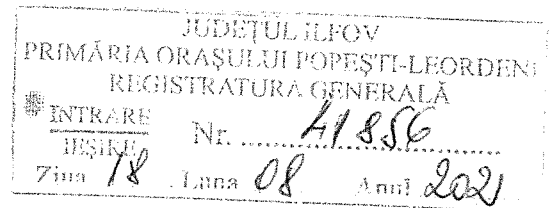 JUDEȚUL ILFOV
PRIMĂRIA ORAȘULUI POPEȘTI-LEORDENI
REGISTRATURA GENERALĂ
INTRARE
IEȘIRE
Nr. .......... 41856
Ziua 18 Luna 08 Anul 2021